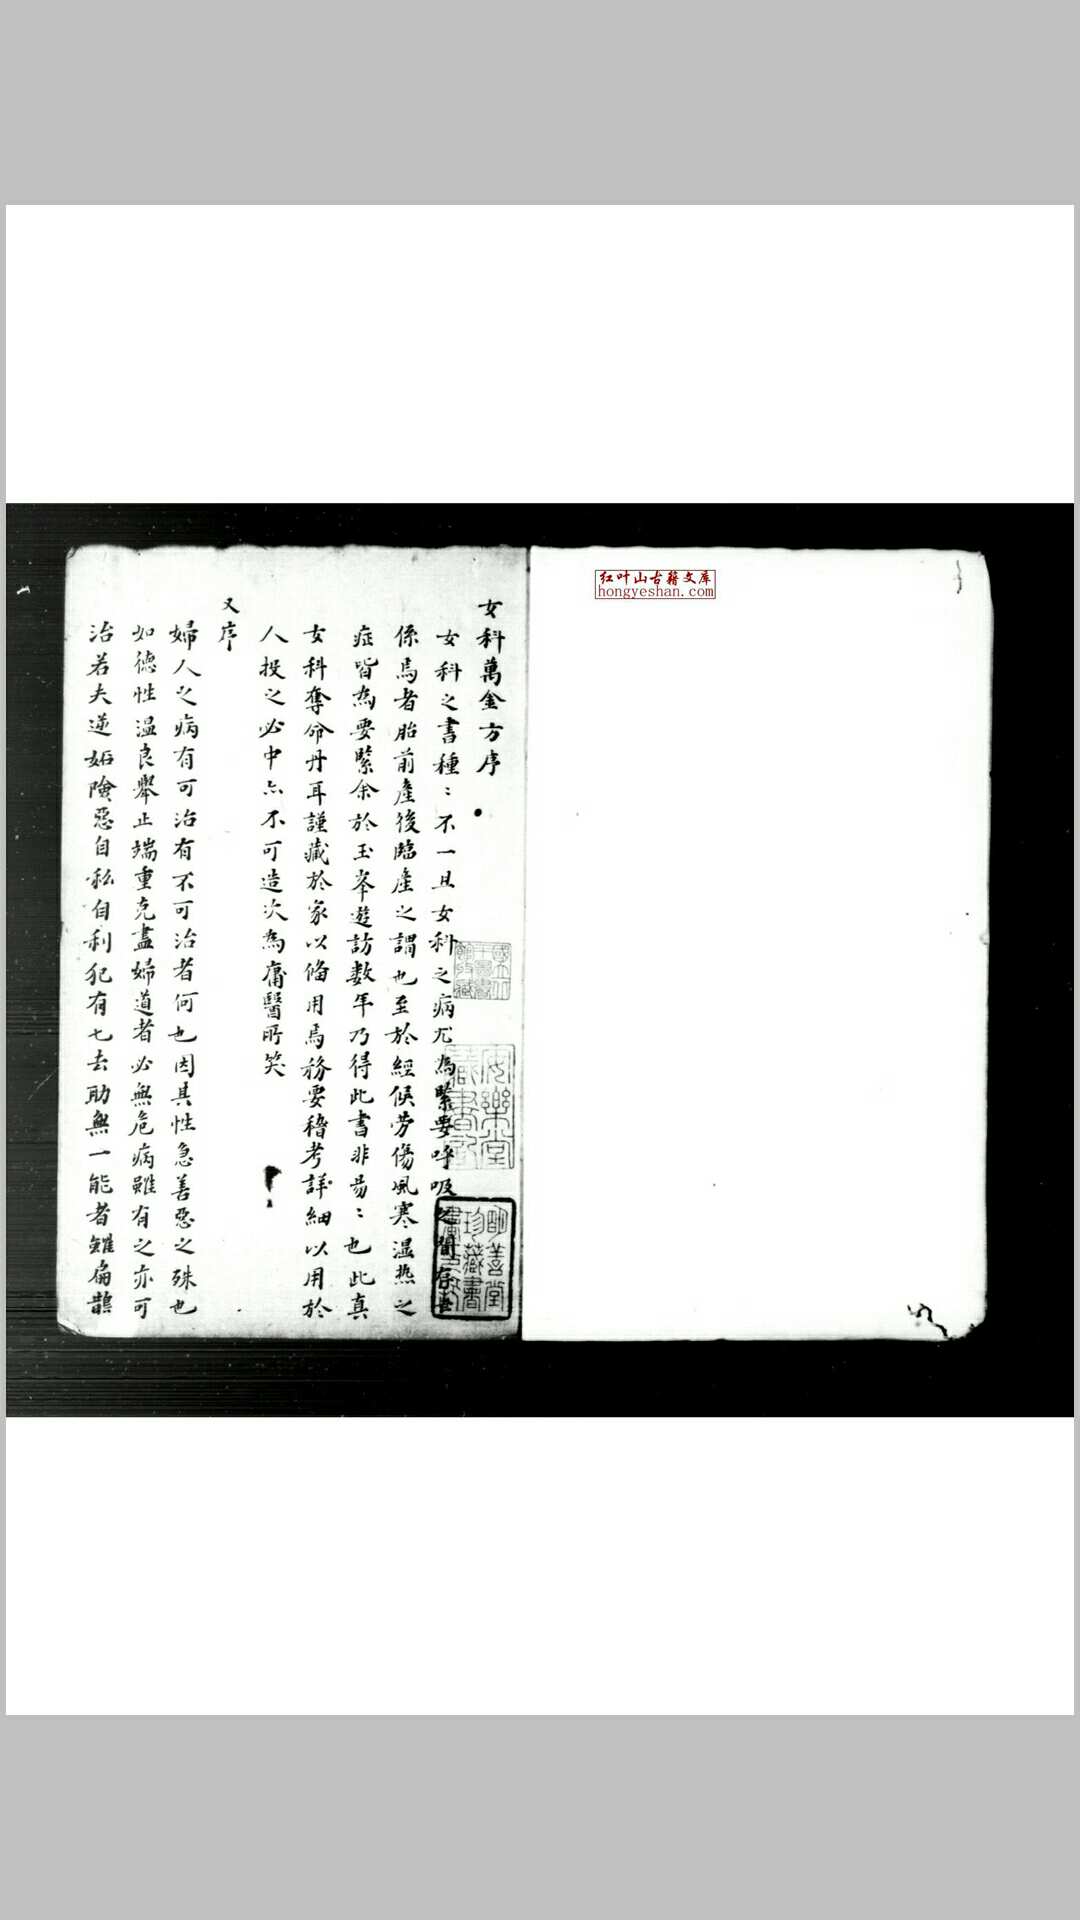 红叶山古籍文库
hongyeshan.com
女科萬金方序
女科之書種〻不一且女科之病尤為緊要呼吸之間存
係焉者胎前產後臨產之謂也至於經候劳傷風寒温热之
症皆為要緊余於玉峯遊訪数年乃得此書非易〻也此真
女科奪命丹耳謹藏於家以俻用焉務要稽考詳細以用於
人投之必中亦不可造次為庸醫所笑
又序
婦人之病有可治有不可治者何也因其性急善惡之殊也
如德性温良舉止端重克盡婦道者必無危病雖有之亦可
治若夫逆妬險惡自私自利犯有七去助無一能者雖扁鵲
安樂堂
藏書記
明善堂
珍藏書